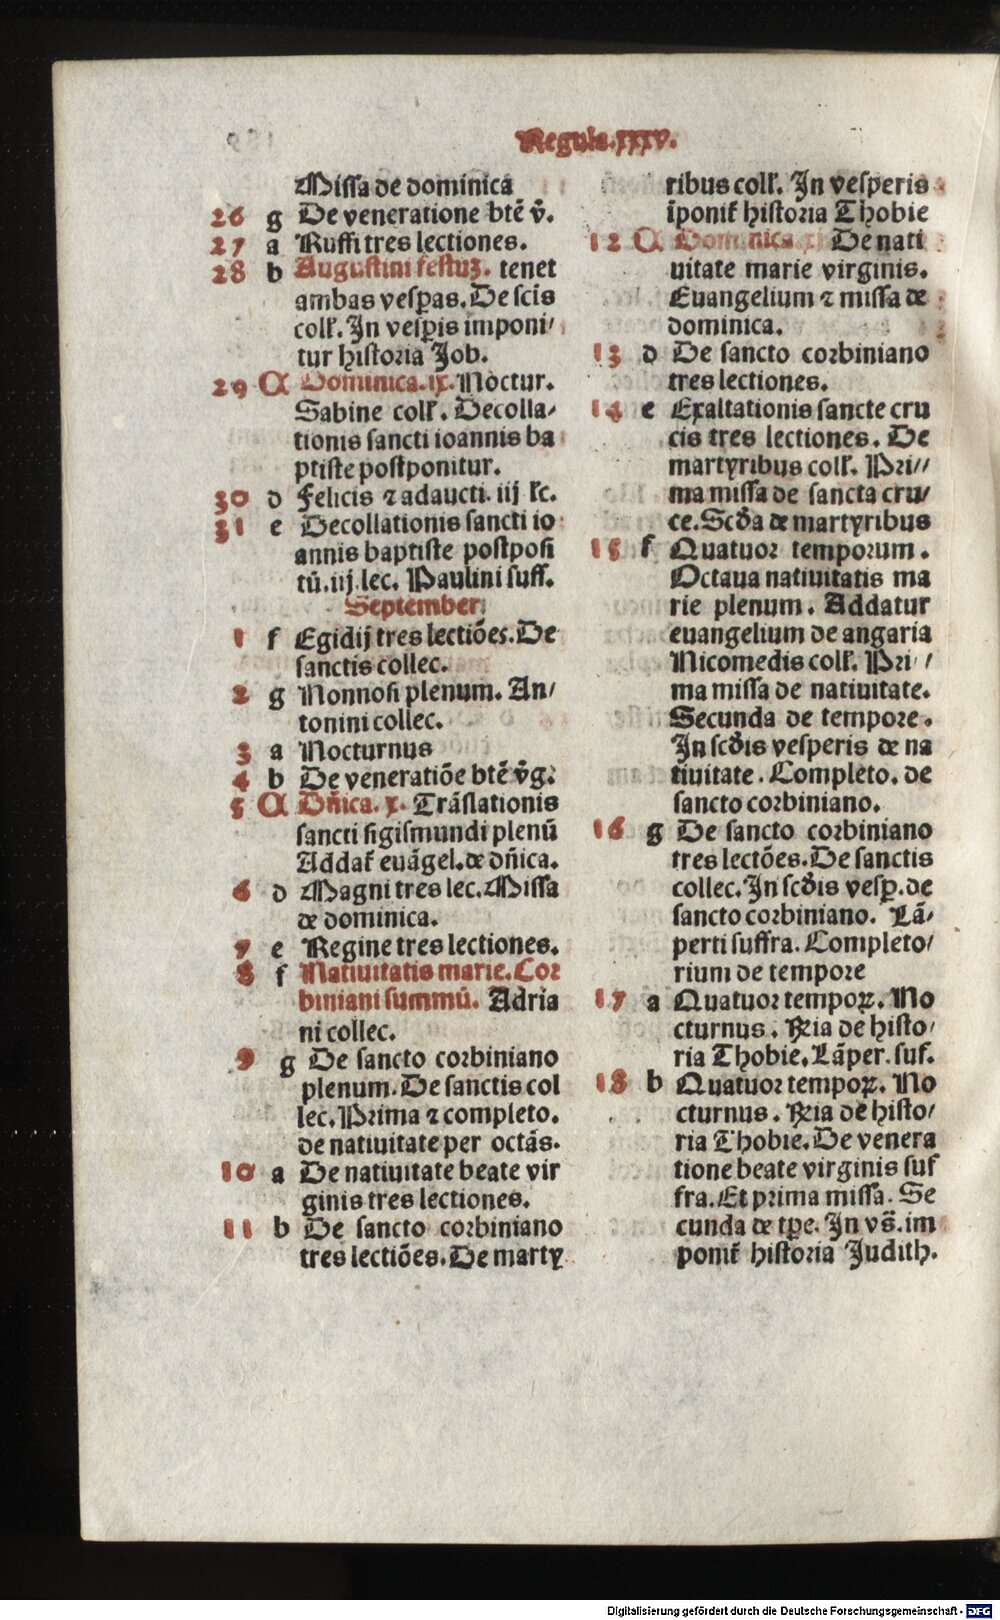 Regula.xxxv.
Missa de dominica
26 g De veneratione btē v̄.
27 a Ruffi tres lectiones.
28 b Augustini festuꝫ. tenet
ambas vesꝑas. De scīs
coll'. In vesꝑis imponi/
tur historia Job.
29 A Dominica.ix. Noctur.
Sabine coll'. Decolla/
tionis sancti ioannis ba
ptiste postponitur.
30 d Felicis ⁊ adaucti. iij lc̄.
31 e Decollationis sancti io
annis baptiste postposi
tū. iij. lec. Paulini suff.
September.
1 f Egidij tres lectiōes. De
sanctis collec.
2 g Nonnosi plenum. An/
tonini collec.
3 a Nocturnus
4 b De veneratiōe btē v̄g.
5 A Dn̄ica. x. Trāslationis
sancti sigismundi plenū
Addat' euāgel. de dn̄ica.
6 d Magni tres lec. Missa
de dominica.
7 e Regine tres lectiones.
8 f Natiuitatis marie. Cor
biniani summū. Adria
ni collec.
9 g De sancto corbiniano
plenum. De sanctis col
lec. Prima ⁊ completo.
de natiuitate per octās.
10 a De natiuitate beate vir
ginis tres lectiones.
11 b De sancto corbiniano
tres lectiōes. De marty
ribus coll'. In vesperis
īponit' historia Thobie
12 A Dominica.xi. De nati
uitate marie virginis.
Euangelium ⁊ missa de
dominica.
13 d De sancto corbiniano
tres lectiones.
14 e Exaltationis sancte cru
cis tres lectiones. De
martyribus coll'. Pri//
ma missa de sancta cru/
ce. Scd̄a de martyribus
15 f Quatuor temporum.
Octaua natiuitatis ma
rie plenum. Addatur
euangelium de angaria
Nicomedis coll'. Pri//
ma missa de natiuitate.
Secunda de tempore.
In scd̄is vesperis de na
tiuitate. Completo. de
sancto corbiniano.
16 g De sancto corbiniano
tres lectōes. De sanctis
collec. In scd̄is vesꝑ. de
sancto corbiniano. Lā/
perti suffra. Completo/
rium de tempore
17 a Quatuor tempoꝝ. No
cturnus. R̄ia de histo/
ria Thobie. Lāper. suf.
18 b Quatuor tempoꝝ. No
cturnus. R̄ia de histo/
ria Thobie. De venera
tione beate virginis suf
fra. Et prima missa. Se
cunda de tꝑe. In vs̄. im
ponit' historia Judith.
Digitalisierung gefördert durch die Deutsche Forschungsgemeinschaft - DFG